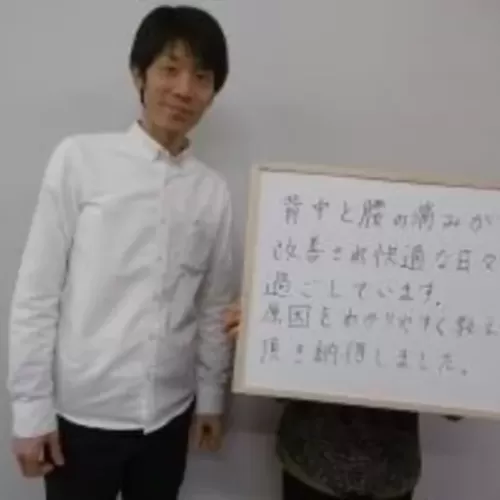 背中と腰の痛みが
改善され快適な日々
過ごしています。
原因をわかりやすく教え
頂き納得しました。